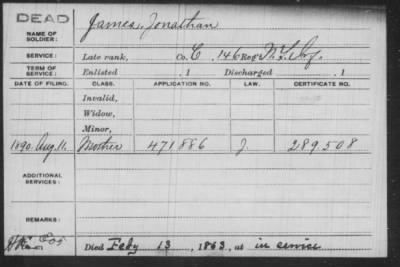 DEAD
NAME OF SOLDIER: James, Jonathan
SERVICE: Late rank, Co. C, 146 Reg't N.Y. Inf.
TERM OF SERVICE: Enlisted , 1 Discharged , 1
DATE OF FILING. CLASS. APPLICATION NO. LAW. CERTIFICATE NO.
Invalid,
Widow,
Minor,
1890. Aug. 11. Mother 471,886 J. 289.508
ADDITIONAL SERVICES:
REMARKS:
Died Feby 13, 1863, at in service